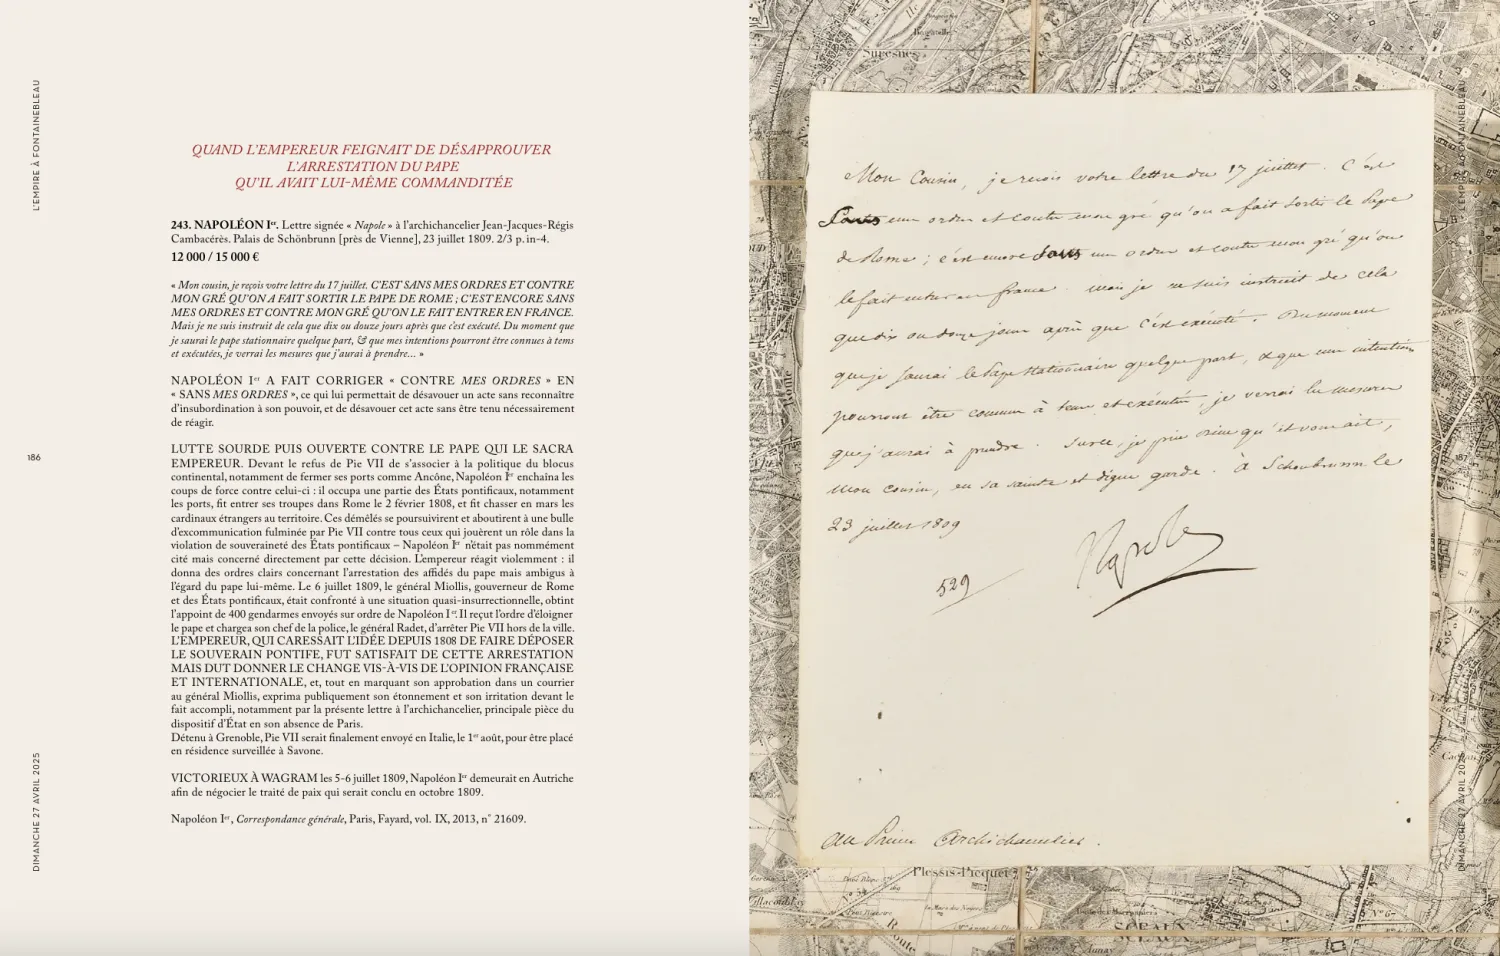 L'EMPIRE À FONTAINEBLEAU
186
DIMANCHE 27 AVRIL 2025
QUAND L'EMPEREUR FEIGNAIT DE DÉSAPPROUVER
L'ARRESTATION DU PAPE
QU'IL AVAIT LUI-MÊME COMMANDITÉE
243. NAPOLÉON Ier. Lettre signée « Napole » à l'archichancelier Jean-Jacques-Régis
Cambacérès. Palais de Schönbrunn [près de Vienne], 23 juillet 1809. 2/3 p. in-4.
12 000 / 15 000 €
« Mon cousin, je reçois votre lettre du 17 juillet. C'EST SANS MES ORDRES ET CONTRE
MON GRÉ QU'ON A FAIT SORTIR LE PAPE DE ROME ; C'EST ENCORE SANS
MES ORDRES ET CONTRE MON GRÉ QU'ON LE FAIT ENTRER EN FRANCE.
Mais je ne suis instruit de cela que dix ou douze jours après que c'est exécuté. Du moment que
je saurai le pape stationnaire quelque part, & que mes intentions pourront être connues à tems
et exécutées, je verrai les mesures que j'aurai à prendre... »
NAPOLÉON Ier A FAIT CORRIGER « CONTRE MES ORDRES » EN
« SANS MES ORDRES », ce qui lui permettait de désavouer un acte sans reconnaître
d'insubordination à son pouvoir, et de désavouer cet acte sans être tenu nécessairement
de réagir.
LUTTE SOURDE PUIS OUVERTE CONTRE LE PAPE QUI LE SACRA
EMPEREUR. Devant le refus de Pie VII de s'associer à la politique du blocus
continental, notamment de fermer ses ports comme Ancône, Napoléon Ier enchaîna les
coups de force contre celui-ci : il occupa une partie des États pontificaux, notamment
les ports, fit entrer ses troupes dans Rome le 2 février 1808, et fit chasser en mars les
cardinaux étrangers au territoire. Ces démêlés se poursuivirent et aboutirent à une bulle
d'excommunication fulminée par Pie VII contre tous ceux qui jouèrent un rôle dans la
violation de souveraineté des États pontificaux – Napoléon Ier n'était pas nommément
cité mais concerné directement par cette décision. L'empereur réagit violemment : il
donna des ordres clairs concernant l'arrestation des affidés du pape mais ambigus à
l'égard du pape lui-même. Le 6 juillet 1809, le général Miollis, gouverneur de Rome
et des États pontificaux, était confronté à une situation quasi-insurrectionnelle, obtint
l'appoint de 400 gendarmes envoyés sur ordre de Napoléon Ier. Il reçut l'ordre d'éloigner
le pape et chargea son chef de la police, le général Radet, d'arrêter Pie VII hors de la ville.
L'EMPEREUR, QUI CARESSAIT L'IDÉE DEPUIS 1808 DE FAIRE DÉPOSER
LE SOUVERAIN PONTIFE, FUT SATISFAIT DE CETTE ARRESTATION
MAIS DUT DONNER LE CHANGE VIS-À-VIS DE L'OPINION FRANÇAISE
ET INTERNATIONALE, et, tout en marquant son approbation dans un courrier
au général Miollis, exprima publiquement son étonnement et son irritation devant le
fait accompli, notamment par la présente lettre à l'archichancelier, principale pièce du
dispositif d'État en son absence de Paris.
Détenu à Grenoble, Pie VII serait finalement envoyé en Italie, le 1er août, pour être placé
en résidence surveillée à Savone.
VICTORIEUX À WAGRAM les 5-6 juillet 1809, Napoléon Ier demeurait en Autriche
afin de négocier le traité de paix qui serait conclu en octobre 1809.
Napoléon Ier, Correspondance générale, Paris, Fayard, vol. IX, 2013, n° 21609.
Suresnes
Mon Cousin, je reçois votre lettre du 17 juillet. C'est
sans mes ordres et contre mon gré qu'on a fait sortir le Pape
de Rome ; c'est encore sans mes ordres et contre mon gré qu'on
le fait entrer en france. Mais je ne suis instruit de cela
que dix ou douze jours après que c'est exécuté. Du moment
que je saurai le Pape stationnaire quelque part, & que mes intentions
pourront être connues à tems et exécutées, je verrai les mesures
que j'aurai à prendre. Surce, je prie Dieu qu'il vous ait,
Mon cousin, en sa sainte et digne garde. à Schönbrunn le
23 juillet 1809
Napole
529
au Prince Archichancelier.
Plessis-Picquet
SCEAUX
Route
187
DIMANCHE 27 AVRIL 2025
L'EMPIRE À FONTAINEBLEAU